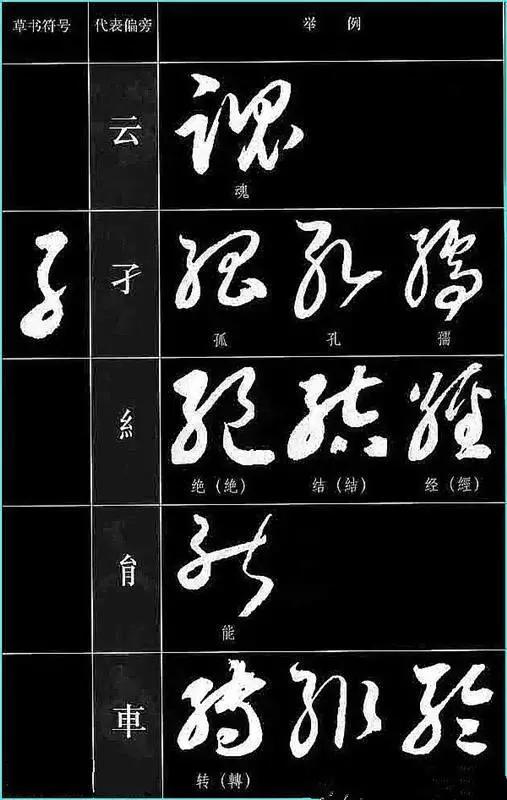 草书符号 代表偏旁 举 例
云
魂
孑
孤 孔 孺
糹
绝（絶） 结（結） 经（經）
能
車
转（轉）